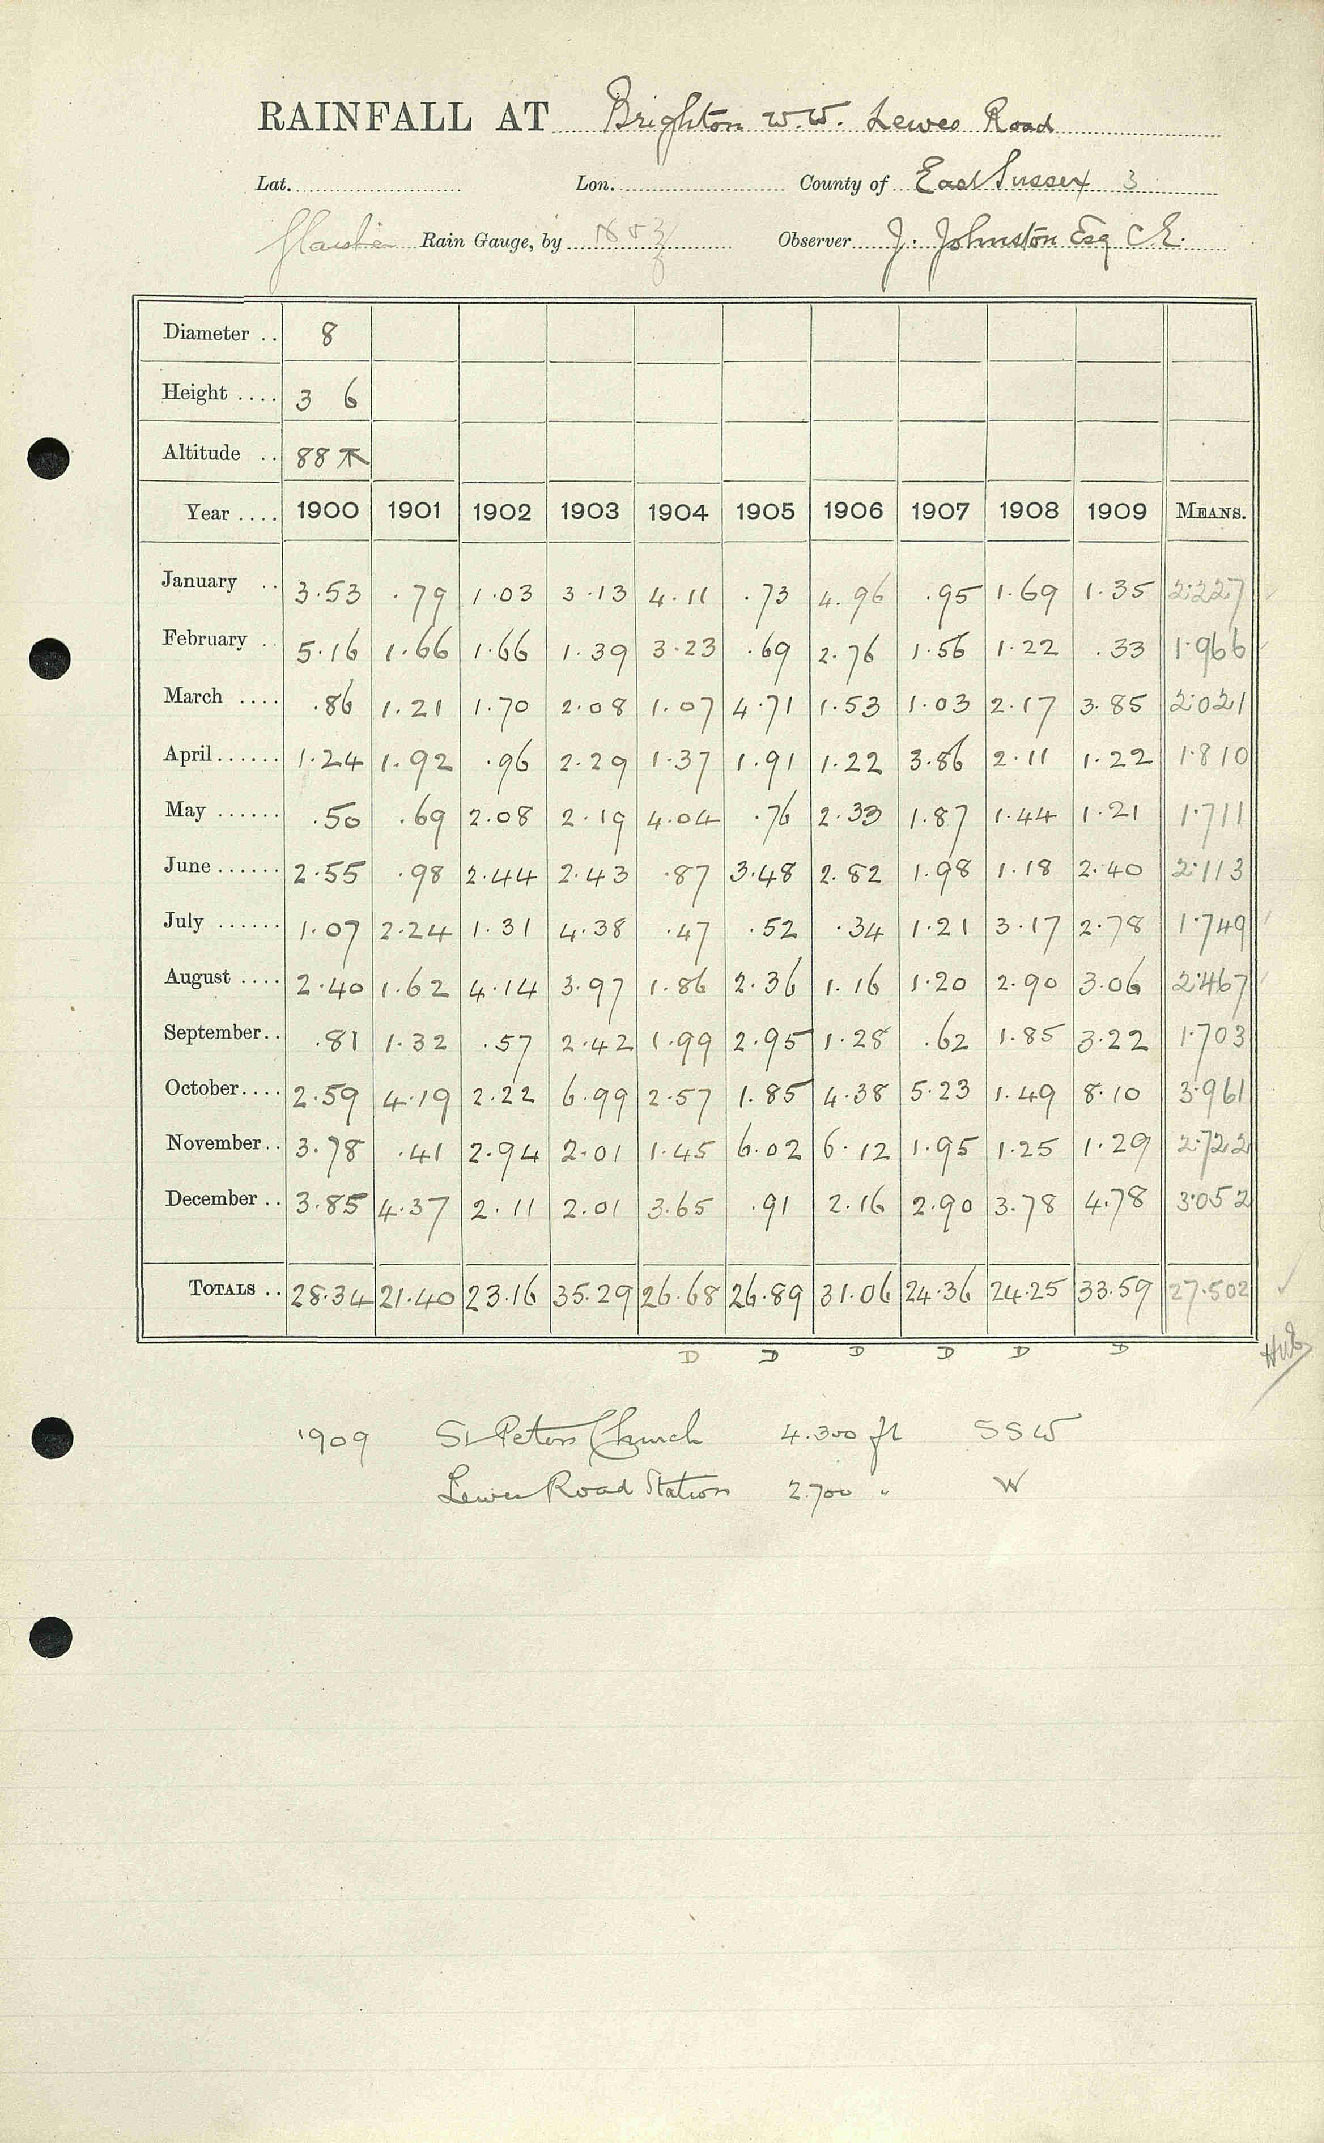 RAINFALL AT Brighton W.W. Lewes Road
Lat. Lon. County of East Sussex 3
Glaisher Rain Gauge, by Observer J. Johnston Esq C.E.
Diameter .. 8
Height .... 3 6
Altitude .. 88
Year .... 1900 1901 1902 1903 1904 1905 1906 1907 1908 1909 MEANS.
January .. 3.53 .79 1.03 3.13 4.11 .73 4.96 .95 1.69 1.35 2.227
February .. 5.16 1.66 1.66 1.39 3.23 .69 2.76 1.56 1.22 .33 1.966
March .... .86 1.21 1.70 2.08 1.07 4.71 1.53 1.03 2.17 3.85 2.021
April ...... 1.24 1.92 .96 2.29 1.37 1.91 1.22 3.86 2.11 1.22 1.810
May ...... .50 .69 2.08 2.19 4.04 .76 2.33 1.87 1.44 1.21 1.711
June ...... 2.55 .98 2.44 2.43 .87 3.48 2.82 1.98 1.18 2.40 2.113
July ...... 1.07 2.24 1.31 4.38 .47 .52 .34 1.21 3.17 2.78 1.749
August .... 2.40 1.62 4.14 3.97 1.86 2.36 1.16 1.20 2.90 3.06 2.467
September .. .81 1.32 .57 2.42 1.99 2.95 1.28 .62 1.85 3.22 1.703
October .... 2.59 4.19 2.22 6.99 2.57 1.85 4.38 5.23 1.49 8.10 3.961
November .. 3.78 .41 2.94 2.01 1.45 6.02 6.12 1.95 1.25 1.29 2.722
December .. 3.85 4.37 2.11 2.01 3.65 .91 2.16 2.90 3.78 4.78 3.052
TOTALS .. 28.34 21.40 23.16 35.29 26.68 26.89 31.06 24.36 24.25 33.59 27.502
D D D D D D
1909 St Peters Church 4.300 ft SSW
Lewes Road Station 2.700 " W